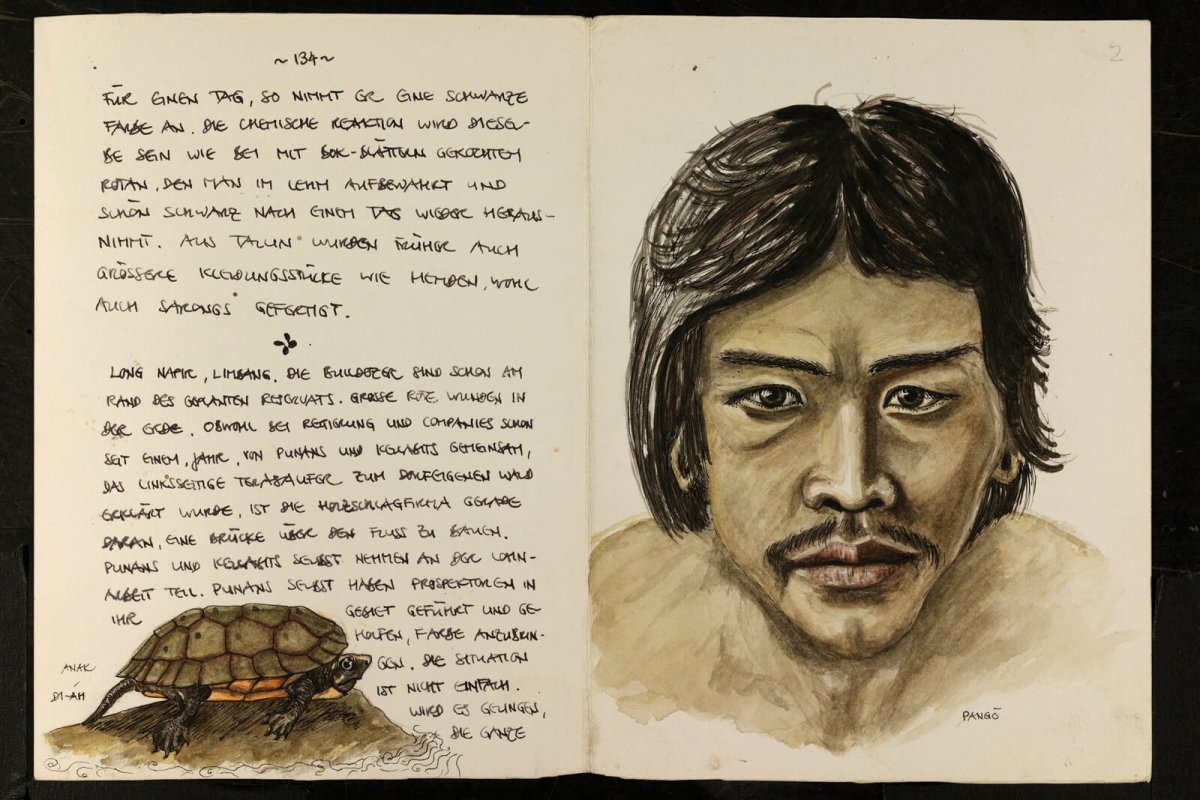 ~ 134 ~
FÜR EINEN TAG, SO NIMMT ER EINE SCHWARZE
FARBE AN. DIE CHEMISCHE REAKTION WIRD DIESEL-
BE SEIN WIE BEI MIT BOK-BLÄTTERN GEKOCHTEM
ROTAN, DEN MAN IM LEHM AUFBEWAHRT UND
SCHÖN SCHWARZ NACH EINEM TAG WIEDER HERAUS-
NIMMT. AUS TALUN WURDEN FRÜHER AUCH
GRÖSSERE KLEIDUNGSSTÜCKE WIE HEMDEN, WOHL
AUCH SARONGS GEFERTIGT.
LONG NAPIR, LIMBANG. DIE BULLDOZER SIND SCHON AM
RAND DES GEPLANTEN RESERVATS. GROSSE ROTE WUNDEN IN
DER ERDE. OBWOHL BEI REGIERUNG UND COMPANIES SCHON
SEIT EINEM JAHR, VON PUNANS UND KELABITS GEMEINSAM,
DAS LINKSSEITIGE TERASAUFER ZUM DORFEIGENEN WALD
ERKLÄRT WURDE, IST DIE HOLZSCHLAGFIRMA GERADE
DARAN, EINE BRÜCKE ÜBER DEN FLUSS ZU BAUEN.
PUNANS UND KELABITS SELBST NEHMEN AN DER LOHN-
ARBEIT TEIL. PUNANS SELBST HABEN PROSPEKTOREN IN
IHR GEBIET GEFÜHRT UND GE-
HOLFEN, FARBE ANZUBRIN-
GEN. DIE SITUATION
IST NICHT EINFACH.
WIRD ES GELINGEN,
DIE GANZE
ANAK
DI-ÁH
2
PANGÓ